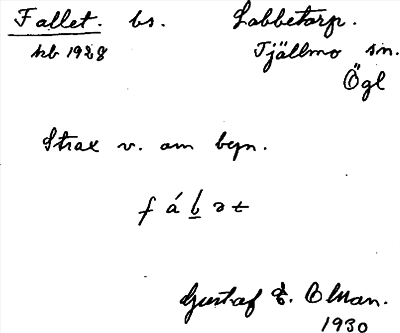 Fallet. bs. Lobbetorp.
hb 1928 Tjällmo sn.
Ögl
Strax v. om byn.
f á l ə t
Gustaf E. Olsson.
1930